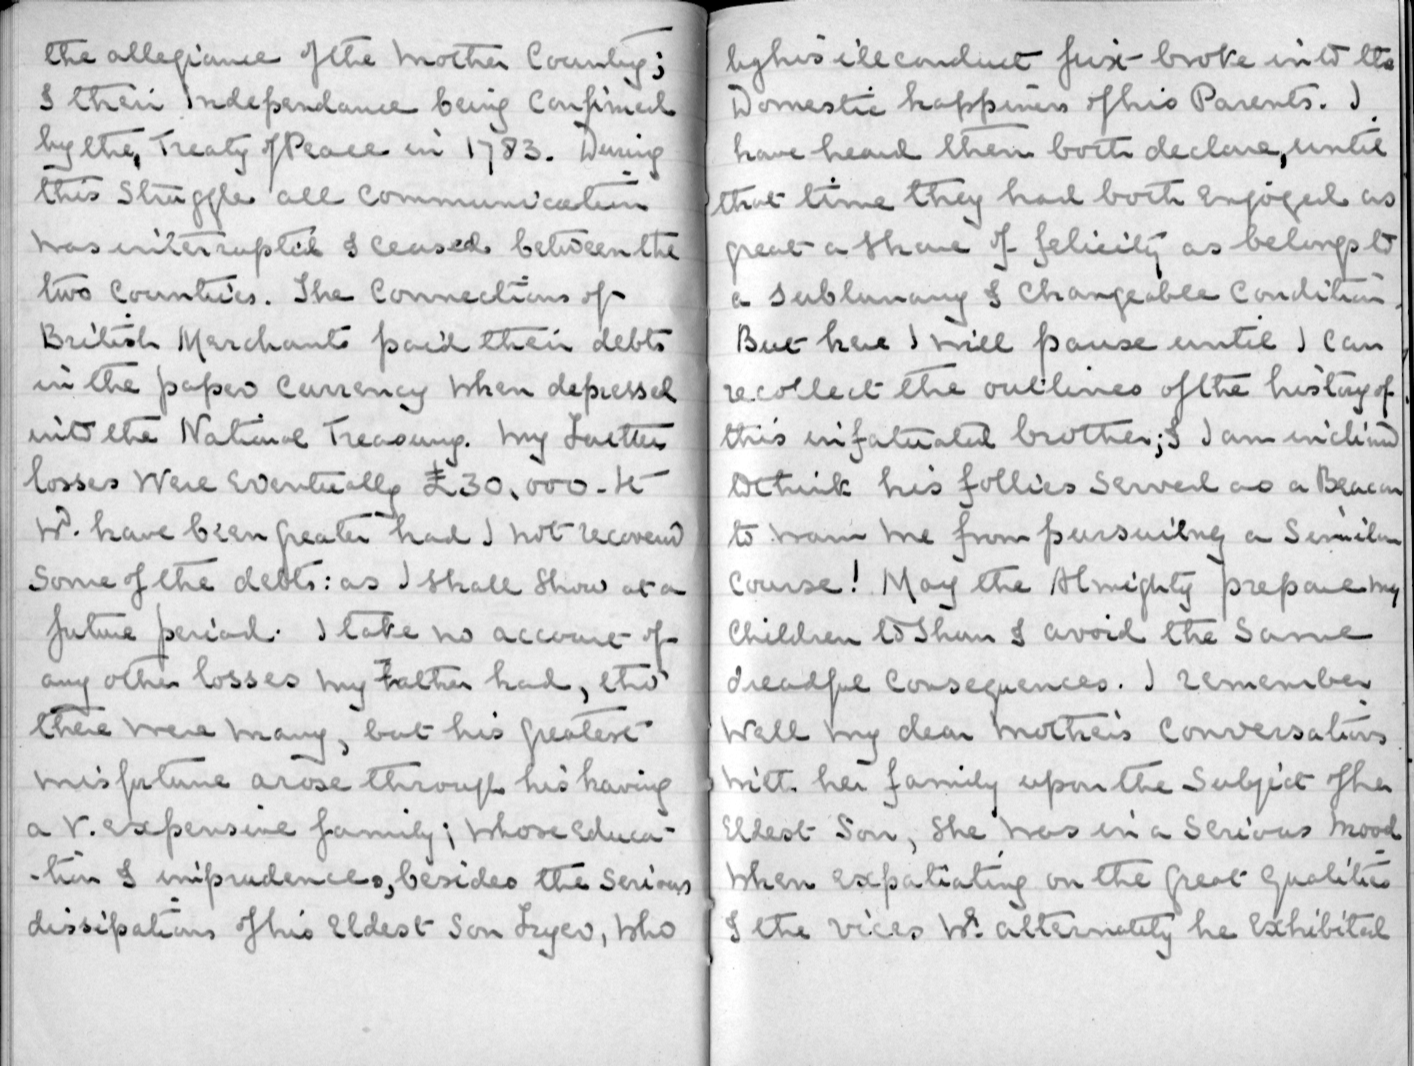 the allegiance of the Mother Country;
& their Independance being Confirmed
by the, Treaty of Peace in 1783. During
this Struggle all Communication
was interrupted & ceased between the
two Countries. The Connections of
British Merchants paid their debts
in the paper Currency when depressed
into the National Treasury. My Father
losses Were Eventually £30,000 - it
wd. have been greater had I not recovered
Some of the debts: as I shall Show at a
future period. I take no account of
any other losses my Father had, tho'
there were many, but his greatest
misfortune arose through his having
a V. expensive family; whose Educa-
-tion & imprudences, besides the Serious
dissipations of his Eldest Son Fryer, who
by his ill conduct first broke into the
Domestic happiness of his Parents. I
have heard them both declare, until
that time they had both Enjoyed as
great a Share of felicity as belongs to
a Sublunary & Changeable Condition.
But here I will pause until I can
recollect the outlines of the history of
this infatuated brother; & I am inclined
to think his follies Served as a Beacon
to warn me from pursuing a Similar
Course! May the Almighty prepare my
Children to Shun & avoid the Same
dreadful Consequences. I remember
Well my dear Mother's Conversations
with her family upon the Subject of her
Eldest Son, She was in a Serious mood
when expatiating on the great Qualities
& the vices wh. alternately he Exhibited